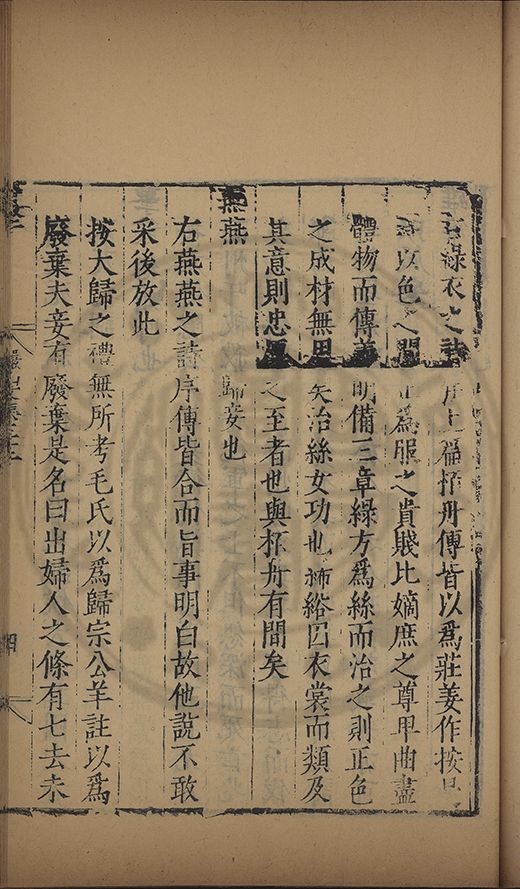 右綠衣之詩序上篇柏舟傳皆以爲莊姜作按
以色之間正爲服之貴賤比嫡庶之尊卑曲盡
體物而傳義明備三章綠方爲絲而治之則正色
之成材無思矣治絲女功也絺綌因衣裳而類及
其意則忠厚之至者也與柏舟有間矣
燕燕 歸妾也
右燕燕之詩序傳皆合而旨事明白故他說不敢
采後放此
按大歸之禮無所考毛氏以爲歸宗公羊註以爲
廢棄夫妾有廢棄是名曰出婦人之條有七去未
四